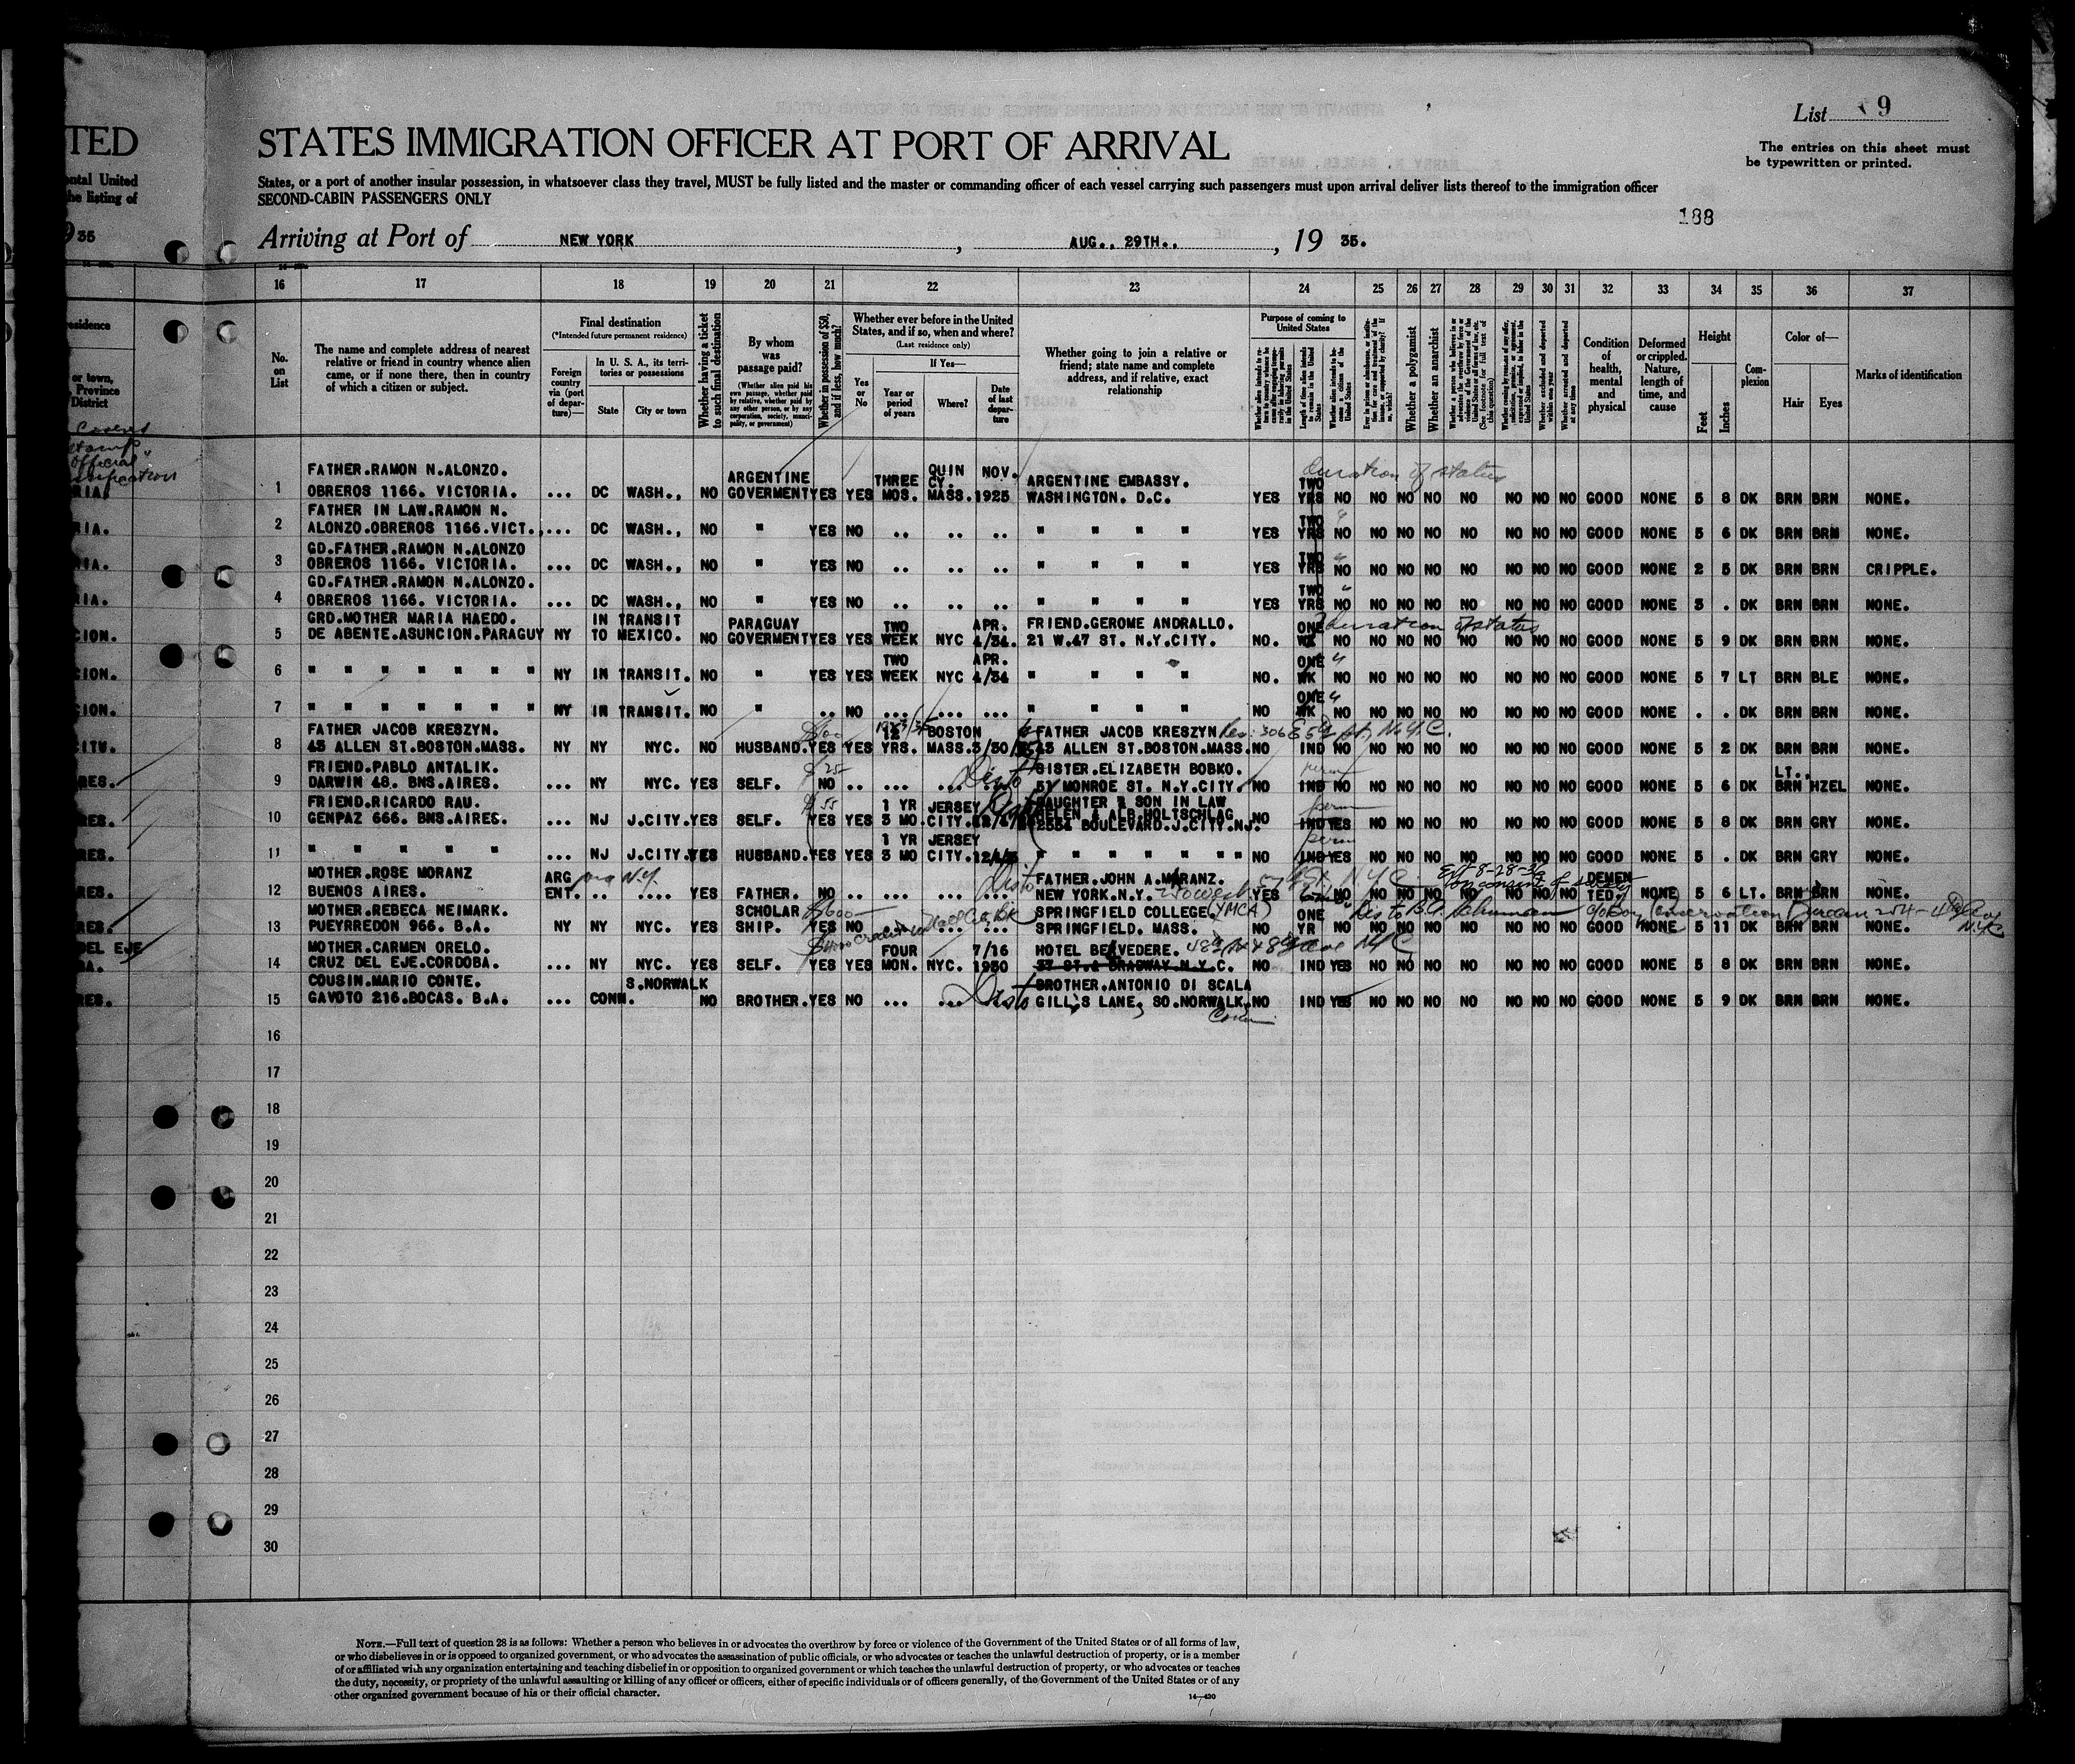 List 9
TED
STATES IMMIGRATION OFFICER AT PORT OF ARRIVAL
The entries on this sheet must
be typewritten or printed.
ental United
he listing of
States, or a port of another insular possession, in whatsoever class they travel, MUST be fully listed and the master or commanding officer of each vessel carrying such passengers must upon arrival deliver lists thereof to the immigration officer
SECOND-CABIN PASSENGERS ONLY
188
35
Arriving at Port of NEW YORK, AUG., 29TH., 19 35.
16 17 18 19 20 21 22 23 24 25 26 27 28 29 30 31 32 33 34 35 36 37
No. on List
The name and complete address of nearest relative or friend in country whence alien came, or if none there, then in country of which a citizen or subject.
Final destination
(*Intended future permanent residence)
Foreign country via (port of departure)—
In U. S. A., its territories or possessions
State
City or town
Whether having a ticket to such final destination
By whom was passage paid?
(Whether alien paid his own passage, whether paid by relative, whether paid by any other person, or by any corporation, society, municipality, or government)
Whether in possession of $50, and if less, how much?
Whether ever before in the United States, and if so, when and where?
(Last residence only)
Yes or No
If Yes—
Year or period of years
Where?
Date of last departure
Whether going to join a relative or friend; state name and complete address, and if relative, exact relationship
Purpose of coming to United States
Whether a polygamist
Whether an anarchist
Condition of health, mental and physical
Deformed or crippled. Nature, length of time, and cause
Height
Feet
Inches
Complexion
Color of—
Hair
Eyes
Marks of identification
duration of status
1 FATHER.RAMON N.ALONZO. OBREROS 1166. VICTORIA. ... DC WASH., NO ARGENTINE GOVERMENT YES YES THREE MOS. QUINCY. MASS. NOV. 1925 ARGENTINE EMBASSY. WASHINGTON. D.C. YES TWO YRS NO NO NO NO NO NO NO NO GOOD NONE 5 8 DK BRN BRN NONE.
2 FATHER IN LAW.RAMON N. ALONZO.OBREROS 1166.VICT., ... DC WASH., NO " YES NO .. .. .. " " " " YES TWO YRS NO NO NO NO NO NO NO NO GOOD NONE 5 6 DK BRN BRN NONE.
3 GD.FATHER.RAMON N.ALONZO OBREROS 1166. VICTORIA. ... DC WASH., NO " YES NO .. .. .. " " " " YES TWO YRS NO NO NO NO NO NO NO NO GOOD NONE 2 5 DK BRN BRN CRIPPLE.
4 GD.FATHER.RAMON N.ALONZO. OBREROS 1166. VICTORIA. ... DC WASH., NO " YES NO .. .. .. " " " " YES TWO YRS NO NO NO NO NO NO NO NO GOOD NONE 3 . DK BRN BRN NONE.
duration of status
5 GRD.MOTHER MARIA HAEDO. DE ABENTE.ASUNCION.PARAGUY NY IN TRANSIT TO MEXICO. NO PARAGUAY GOVERMENT YES YES TWO WEEK NYC APR. 4/34. FRIEND.GEROME ANDRALLO. 21 W.47 ST. N.Y.CITY. NO. ONE WK NO NO NO NO NO NO NO NO GOOD NONE 5 9 DK BRN BRN NONE.
6 " " " " " " " NY IN TRANSIT. NO " YES YES TWO WEEK NYC APR. 4/34 " " " " NO. ONE WK NO NO NO NO NO NO NO NO GOOD NONE 5 7 LT BRN BLE NONE.
7 " " " " " " " NY IN TRANSIT. NO " .. NO ... ... ... " " " " NO ONE WK NO NO NO NO NO NO NO NO GOOD NONE . . DK BRN BRN NONE.
8 FATHER JACOB KRESZYN. 43 ALLEN ST.BOSTON.MASS. NY NY NYC. NO HUSBAND. YES YES 12 YRS. BOSTON MASS. 3/30/ FATHER JACOB KRESZYN 43 ALLEN ST.BOSTON.MASS. NO IND NO NO NO NO NO NO NO NO GOOD NONE 5 2 DK BRN BRN NONE.
9 FRIEND.PABLO ANTALIK. DARWIN 48. BNS.AIRES. ... NY NYC. YES SELF. NO .. ... ... SISTER.ELIZABETH BOBKO. 57 MONROE ST. N.Y.CITY. NO IND NO NO NO NO NO NO NO NO GOOD NONE 5 6 DK LT.. BRN HZEL NONE.
perm
10 FRIEND.RICARDO RAU. GENPAZ 666. BNS.AIRES. ... NJ J.CITY. YES SELF. YES YES 1 YR 3 MO. JERSEY CITY. DAUGHTER & SON IN LAW HELEN & ALB.HOLTSCHLAG 2551 BOULEVARD.J.CITY.NJ. NO IND YES NO NO NO NO NO NO NO GOOD NONE 5 8 DK BRN GRY NONE.
perm
11 " " " " " ... NJ J.CITY. YES HUSBAND. YES YES 1 YR 3 MO JERSEY CITY. " " " " " " NO IND YES NO NO NO NO NO NO NO GOOD NONE 5 . DK BRN GRY NONE.
12 MOTHER.ROSE MORANZ BUENOS AIRES. ARG ENT. .. .... YES FATHER. NO .. .... ... ... FATHER.JOHN A.MORANZ. NEW YORK.N.Y. YES NO NO NO NO NO NO NO NO DEMENTED? NONE 5 6 LT. BRN BRN NONE.
13 MOTHER.REBECA NEIMARK. PUEYRREDON 966. B.A. NY NY NYC. YES SCHOLARSHIP. YES NO ... ... ... SPRINGFIELD COLLEGE. (YMCA) SPRINGFIELD. MASS. ONE YR NO NO NO NO NO NO NO NO GOOD NONE 5 11 DK BRN BRN NONE.
14 MOTHER.CARMEN ORELO. CRUZ DEL EJE.CORDOBA. ... NY NYC. YES SELF. YES YES FOUR MON. NYC. 7/16 1930 HOTEL BELVEDERE. 37 ST.& BRADWAY.N.Y.C. NO IND YES NO NO NO NO NO NO NO GOOD NONE 5 8 DK BRN BRN NONE.
15 COUSIN.MARIO CONTE. GAVOTO 216.BOCAS. B.A. ... CONN. S.NORWALK NO BROTHER. YES NO ... ... BROTHER.ANTONIO DI SCALA GILL'S LANE, SO.NORWALK. Conn. NO IND YES NO NO NO NO NO NO NO GOOD NONE 5 9 DK BRN BRN NONE.
16
17
18
19
20
21
22
23
24
25
26
27
28
29
30
NOTE.—Full text of question 28 is as follows: Whether a person who believes in or advocates the overthrow by force or violence of the Government of the United States or of all forms of law,
or who disbelieves in or is opposed to organized government, or who advocates the assassination of public officials, or who advocates or teaches the unlawful destruction of property, or is a member
of or affiliated with any organization entertaining and teaching disbelief in or opposition to organized government or which teaches the unlawful destruction of property, or who advocates or teaches
the duty, necessity, or propriety of the unlawful assaulting or killing of any officer or officers, either of specific individuals or of officers generally, of the Government of the United States or of any
other organized government because of his or their official character.
14—430